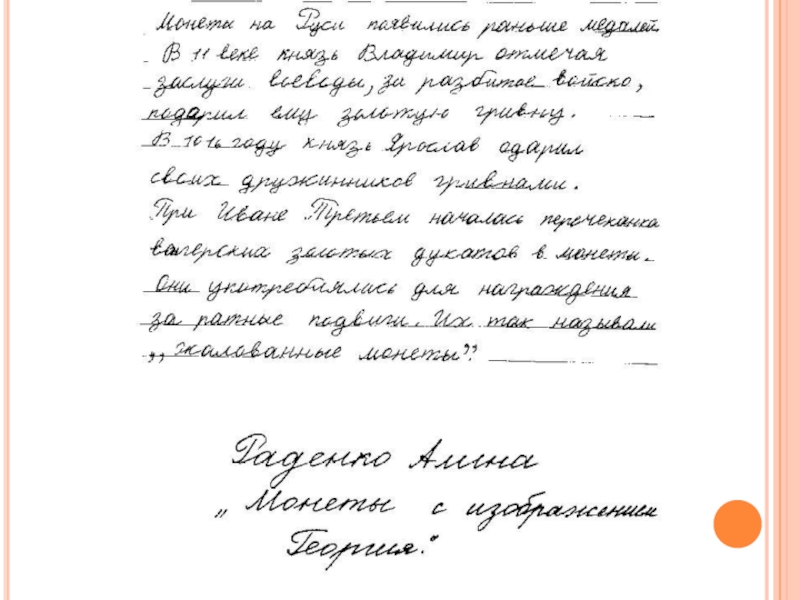 Монеты на Руси появились раньше медалей.
В 11 веке князь Владимир отмечая
заслуги воеводы, за разбитое войско,
подарил ему золотую гривну.
В 1016 году князь Ярослав одарил
своих дружинников гривнами.
При Иване Третьем началась перечеканка
венгерских золотых дукатов в монеты.
Они употреблялись для награждения
за ратные подвиги. Их так называли
„жалованные монеты”
Раденко Алина
„Монеты с изображением
Георгия.“